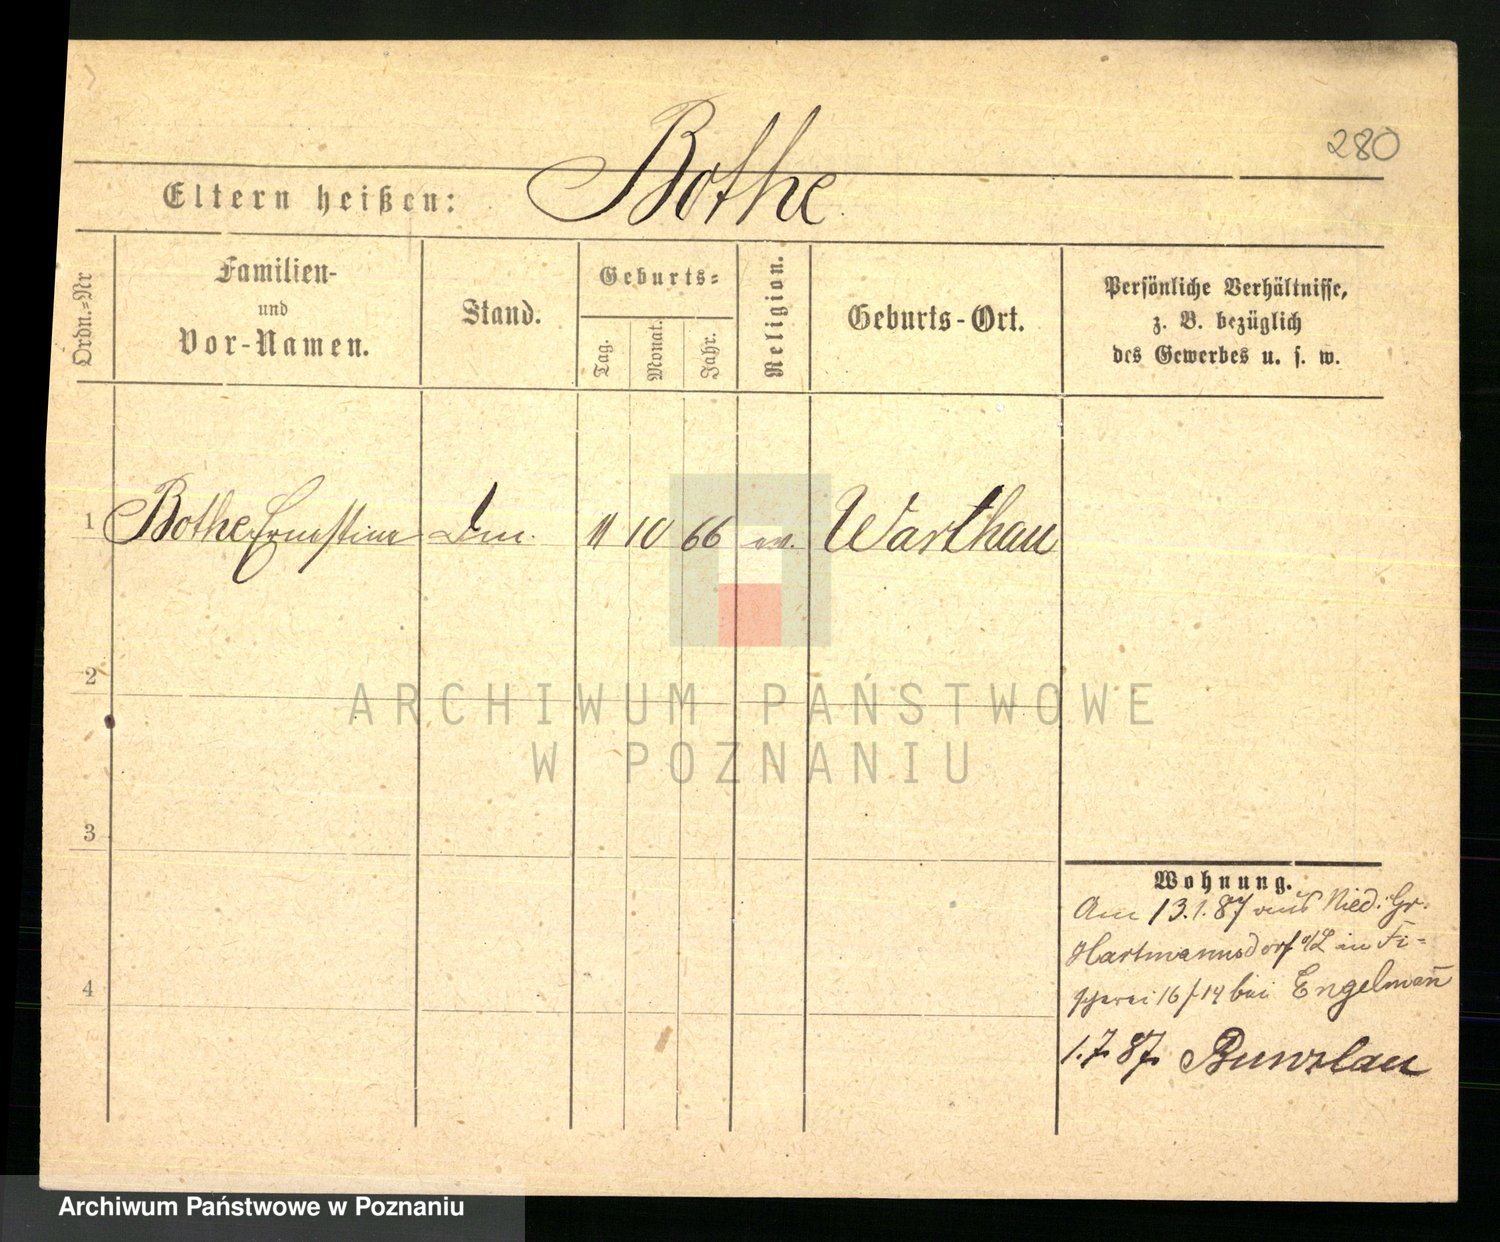 280
Eltern heißen: Bothe
Ordn.=Nr
Familien-
und
Vor-Namen.
Stand.
Geburts=
Tag.
Monat.
Jahr.
Religion.
Geburts-Ort.
Persönliche Verhältnisse,
z. B. bezüglich
des Gewerbes u. s. w.
1 Bothe Ernestine 11 10 66 ev. Warthau
2
ARCHIWUM PAŃSTWOWE
W POZNANIU
3
4
Wohnung.
Am 13.1.87 aus Nied. Gr.
Hartmannsdorf in Fi-
scherei 16/14 bei Engelmañ
1.7.87. Bunzlau
Archiwum Państwowe w Poznaniu